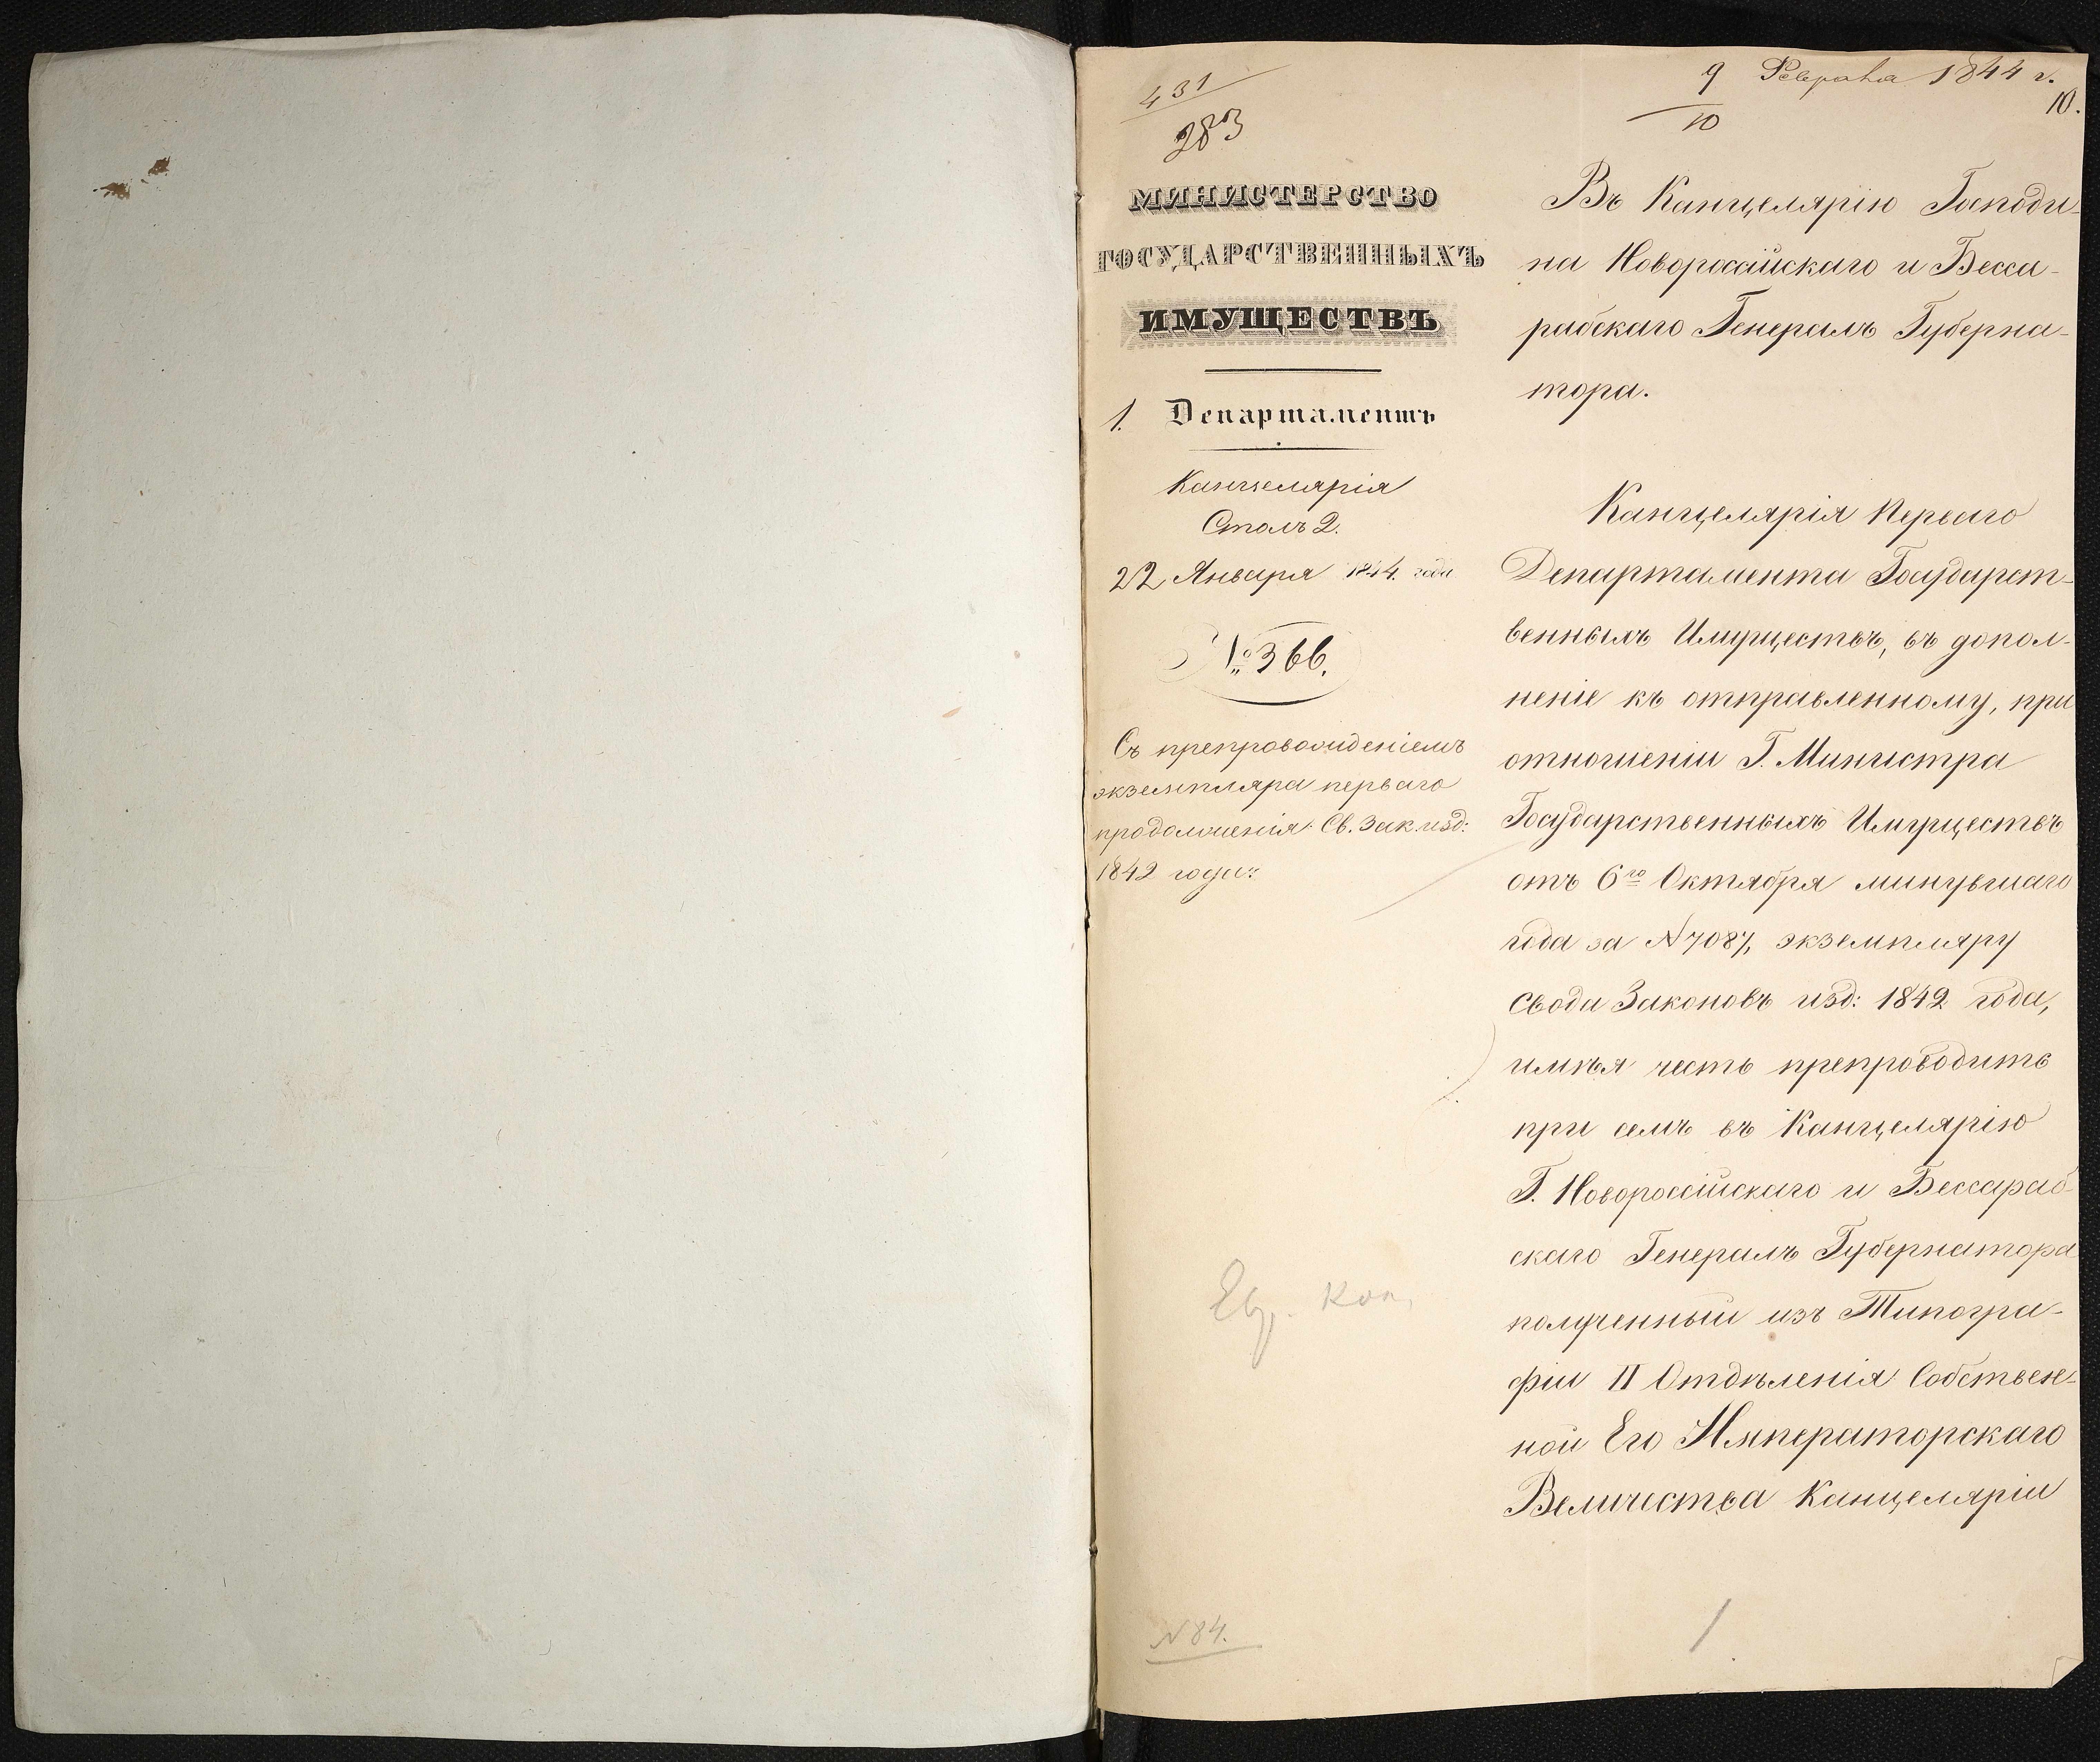 431
283
9 Февраля 1844 г.
10
10.
МИНИСТЕРСТВО
ГОСУДАРСТВЕННЫХЪ
ИМУЩЕСТВЪ
1. Департаментъ
Канцелярія
Столъ 2.
22 Января 1844. года
№ 366.
Съ препровожденіемъ
экземпляра перваго
продолженія Св. Зак. изд:
1842 года:
Въ Канцелярію Господи-
на Новороссійскаго и Бесса-
рабскаго Генералъ Губерна-
тора.
Канцелярія Перваго
Департамента Государст-
венныхъ Имуществъ, въ допол-
неніе къ отправленному, при
отношеніи Г. Министра
Государственныхъ Имуществъ
отъ 6го Октября минувшаго
года за N 7087, экземпляру
Свода Законовъ изд: 1842 года,
имѣя честь препроводить
при семъ въ Канцелярію
Г. Новороссійскаго и Бессараб-
скаго Генералъ Губернатора
полученный изъ Типогра-
фіи II Отдѣленія Собствен-
ной Его Императорскаго
Величества Канцеляріи
N 84.
1